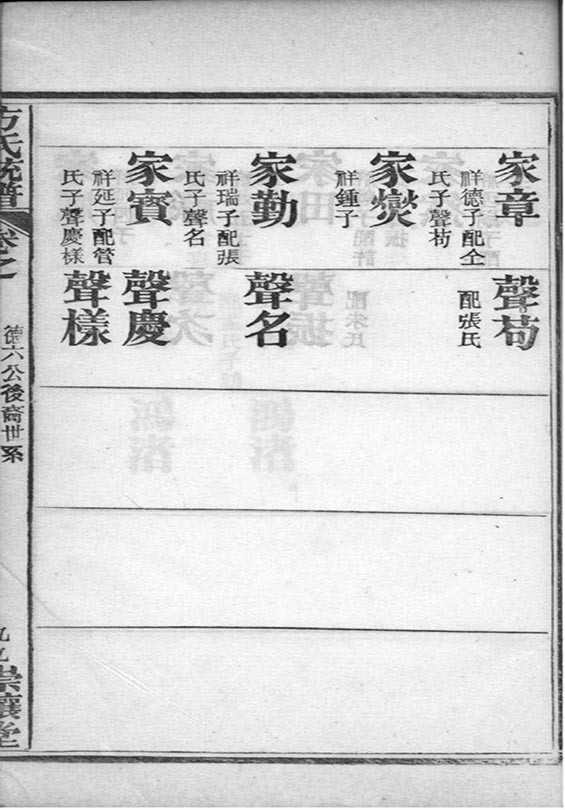 家章
祥德子配金
氏子聲苟
家爕
祥鍾子
家勤
祥瑞子配張
氏子聲名
家賓
祥延子配管
氏子聲慶樣
聲苟
配張氏
聲名
聲慶
聲樣
方氏統譜
卷之
德六公後裔世系
九
崇讓堂